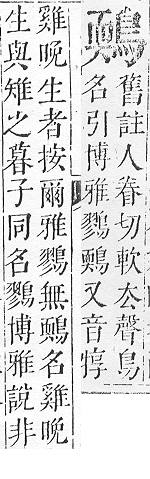 舊註人眷切軟厺聲鳥
名引博雅鷚又音惇
雞晚生者按爾雅鷚無名雞晚
生與雉之暮子同名鷚博雅說非